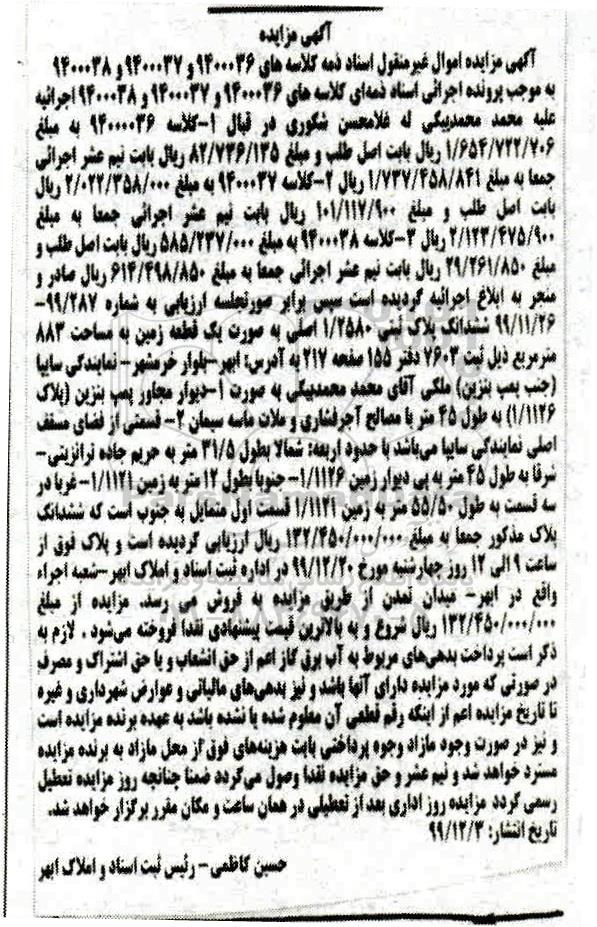 آگهی مزایده
آگهی مزایده اموال غیرمنقول اسناد ذمه کلاسه های ۹۴۰۰۰۳۶ و ۹۴۰۰۰۳۷ و ۹۴۰۰۰۳۸
به موجب پرونده اجرائی اسناد ذمه‌ای کلاسه های ۹۴۰۰۰۳۶ و ۹۴۰۰۰۳۷ و ۹۴۰۰۰۳۸ اجرائیه
علیه محمد محمدبیکی له غلامحسن شکوری در قبال ۱-کلاسه ۹۴۰۰۰۰۳۶ به مبلغ
۱/۶۵۴/۷۲۲/۷۰۶ ریال بابت اصل طلب و مبلغ ۸۲/۷۳۶/۱۳۵ ریال بابت نیم عشر اجرائی
جمعا به مبلغ ۱/۷۳۷/۴۵۸/۸۴۱ ریال ۲-کلاسه ۹۴۰۰۰۳۷ به مبلغ ۲/۰۲۲/۳۵۸/۰۰۰ ریال
بابت اصل طلب و مبلغ ۱۰۱/۱۱۷/۹۰۰ ریال بابت نیم عشر اجرائی جمعا به مبلغ
۲/۱۲۳/۴۷۵/۹۰۰ ریال ۳-کلاسه ۹۴۰۰۰۳۸ به مبلغ ۵۸۵/۲۳۷/۰۰۰ ریال بابت اصل طلب و
مبلغ ۲۹/۲۶۱/۸۵۰ ریال بابت نیم عشر اجرائی جمعا به مبلغ ۶۱۴/۴۹۸/۸۵۰ ریال صادر و
منجر به ابلاغ اجرائیه گردیده است سپس برابر صورتجلسه ارزیابی به شماره ۹۹/۲۸۷-
۹۹/۱۱/۲۶ ششدانک پلاک ثبتی ۱/۲۵۸۰ اصلی به صورت یک قطعه زمین به مساحت ۸۸۳
مترمربع ذیل ثبت ۷۶۰۳ دفتر ۱۵۵ صفحه ۲۱۷ به آدرس: ابهر-بلوار خرمشهر- نمایندگی سایپا
(جنب پمپ بنزین) ملکی آقای محمد محمدبیکی به صورت ۱-دیوار مجاور پمپ بنزین (پلاک
۱/۱۱۲۶) به طول ۴۵ متر با مصالح آجرفشاری و ملات ماسه سیمان ۲- قسمتی از فضای مسقف
اصلی نمایندگی سایپا می‌باشد با حدود اربعه: شمالا بطول ۳۱/۵ متر به حریم جاده ترانزیتی-
شرقا به طول ۴۵ متر به پی دیوار زمین ۱/۱۱۲۶- جنوبا بطول ۱۲ متر به زمین ۱/۱۱۲۱- غربا در
سه قسمت به طول ۵۵/۵۰ متر به زمین ۱/۱۱۲۱ قسمت اول متمایل به جنوب است که ششدانک
پلاک مذکور جمعا به مبلغ ۱۳۲/۴۵۰/۰۰۰/۰۰۰ ریال ارزیابی گردیده است و پلاک فوق از
ساعت ۹ الی ۱۲ روز چهارشنبه مورخ ۹۹/۱۲/۲۰ در اداره ثبت اسناد و املاک ابهر-شعبه اجراء
واقع در ابهر- میدان تمدن از طریق مزایده به فروش می رسد. مزایده از مبلغ
۱۳۲/۴۵۰/۰۰۰/۰۰۰ ریال شروع و به بالاترین قیمت پیشنهادی نقدا فروخته می‌شود . لازم به
ذکر است پرداخت بدهی‌های مربوط به آب برق گاز اعم از حق انشعاب و یا حق اشتراک و مصرف
در صورتی که مورد مزایده دارای آنها باشد و نیز بدهی‌های مالیاتی و عوارض شهرداری و غیره
تا تاریخ مزایده اعم از اینکه رقم قطعی آن معلوم شده یا نشده باشد به عهده برنده مزایده است
و نیز در صورت وجود مازاد وجوه پرداختی بابت هزینه‌های فوق از محل مازاد به برنده مزایده
مسترد خواهد شد و نیم عشر و حق مزایده نقدا وصول می‌گردد ضمنا چنانچه روز مزایده تعطیل
رسمی گردد مزایده روز اداری بعد از تعطیلی در همان ساعت و مکان مقرر برگزار خواهد شد.
تاریخ انتشار: ۹۹/۱۲/۳
حسین کاظمی- رئیس ثبت اسناد و املاک ابهر